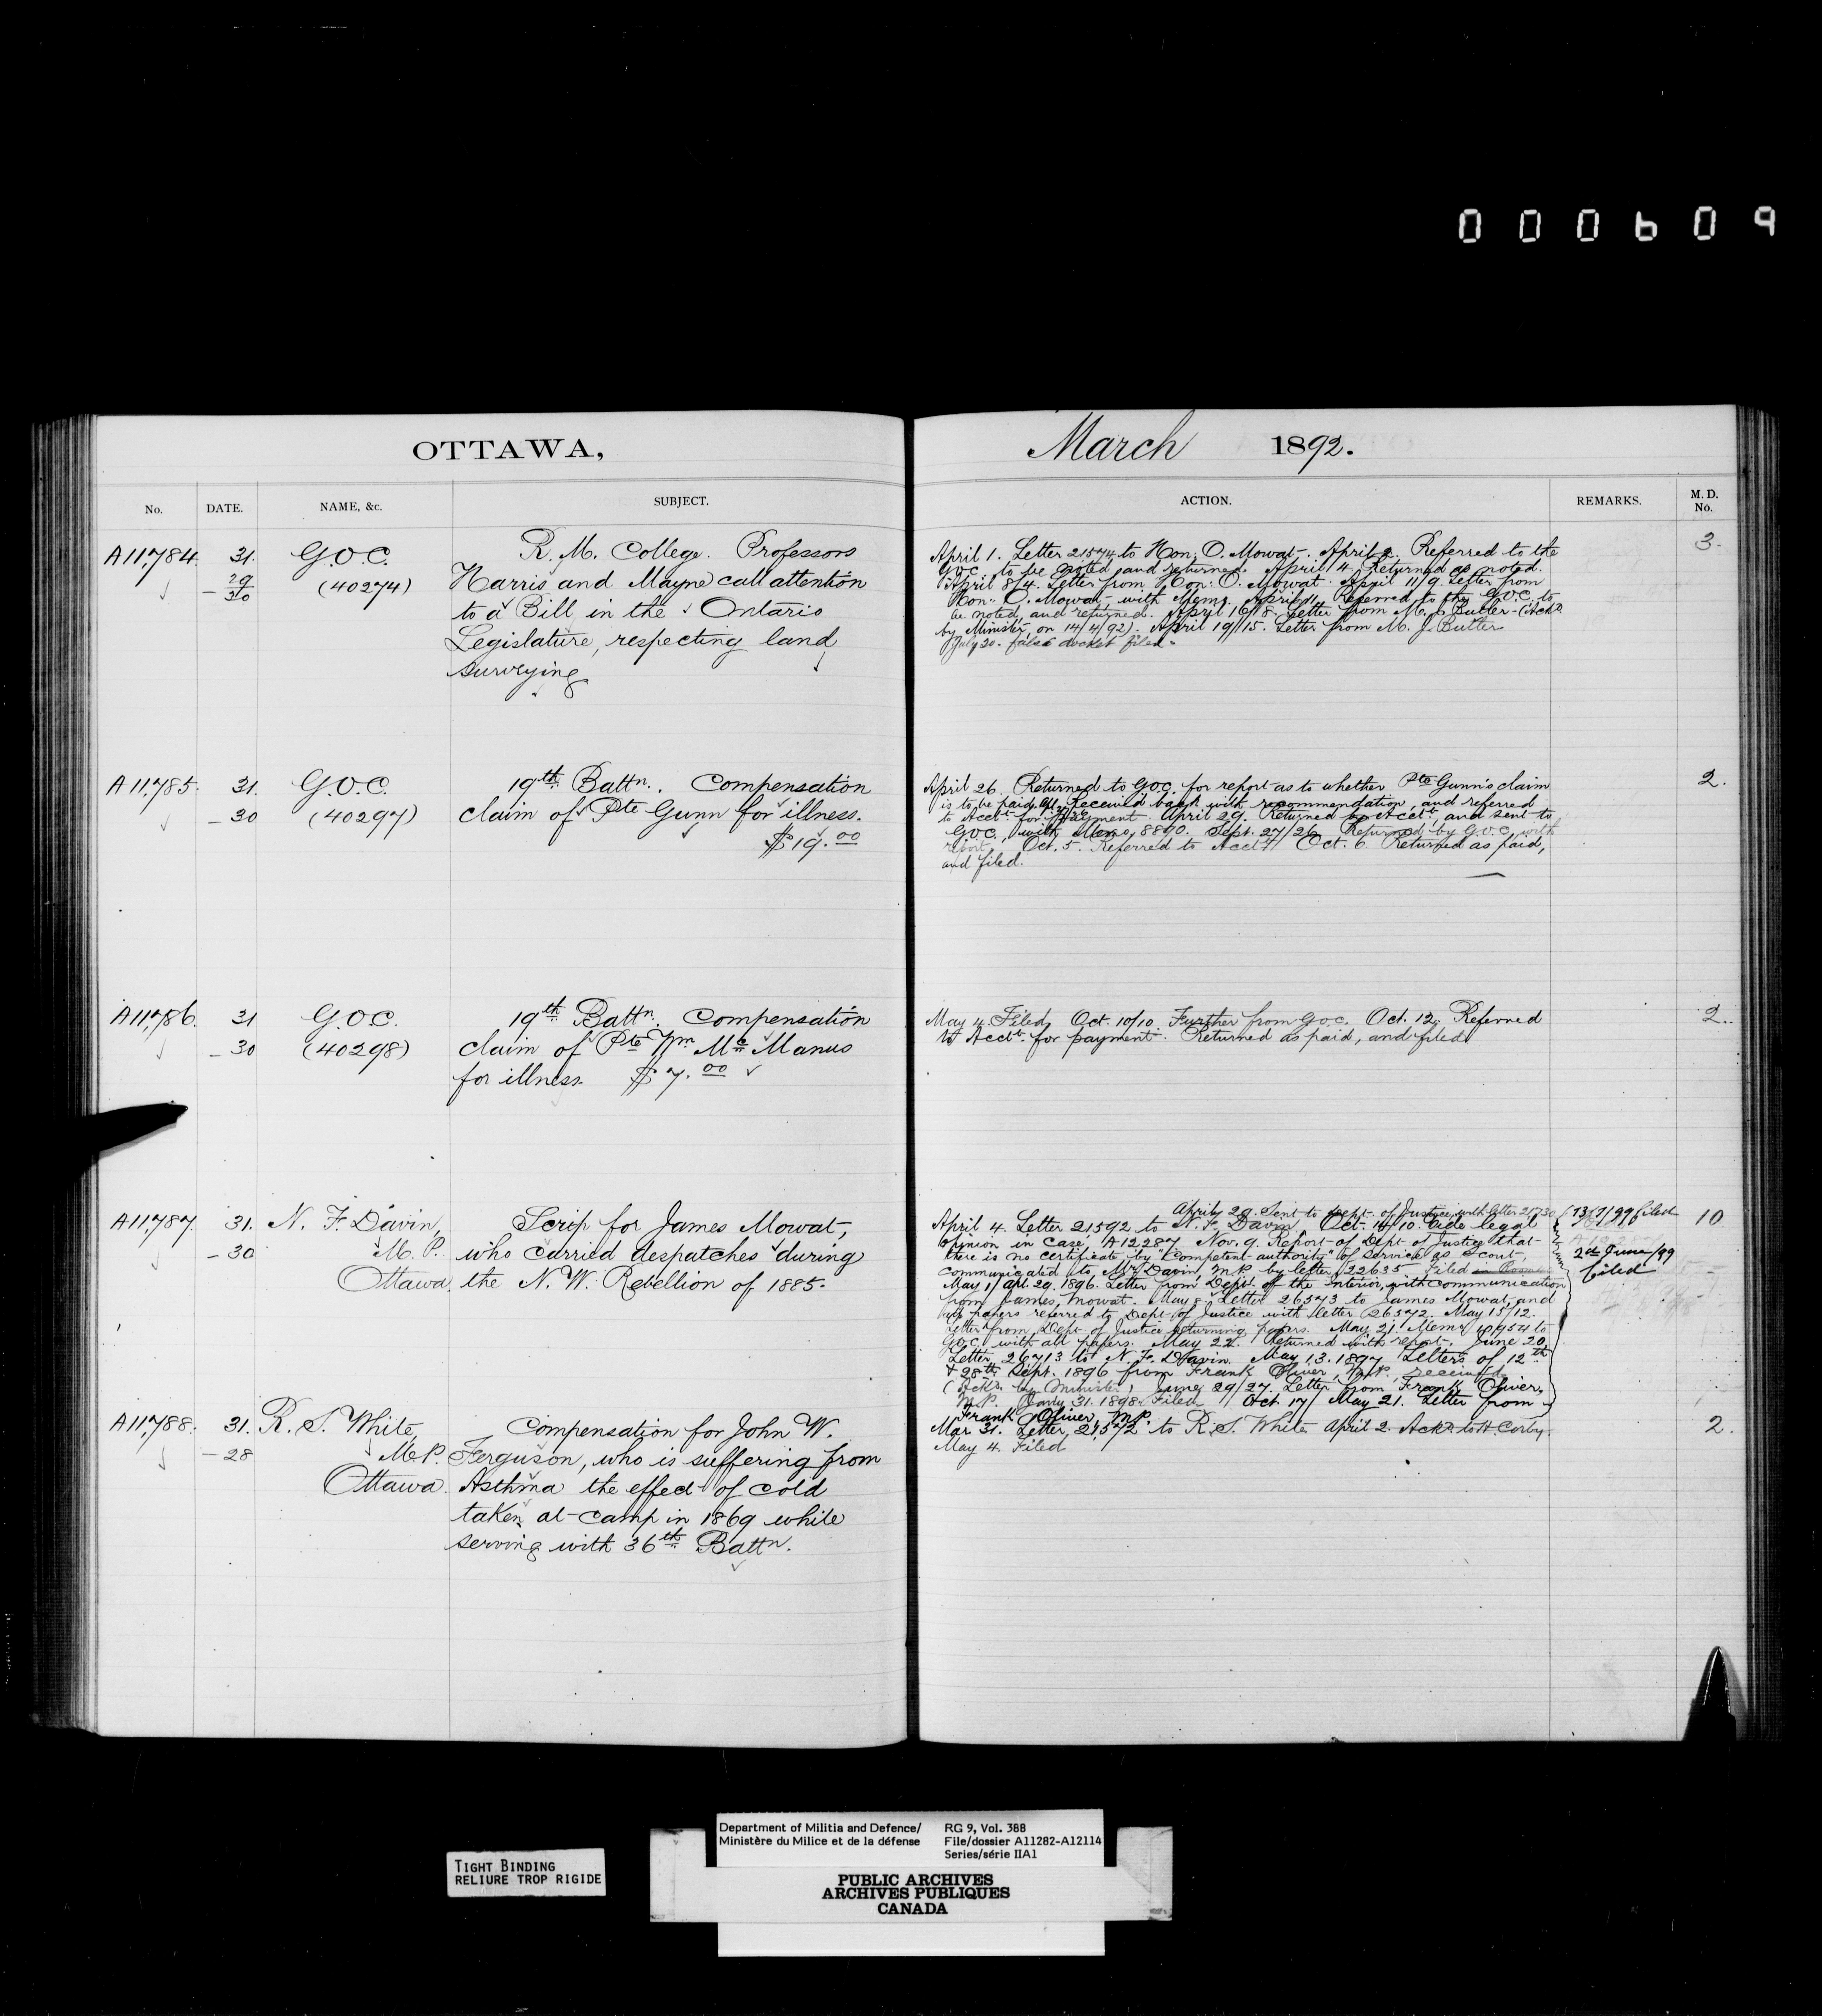 000609
OTTAWA,
March 1892.
No. DATE. NAME, &c. SUBJECT.
ACTION. REMARKS. M. D. No.
A11,784. 31. G.O.C. R. M. College. Professors
29/30 (40274) Harris and Mayne call attention
to a Bill in the Ontario
Legislature, respecting land
surveying
April 1. Letter 21574 to Hon: O. Mowat. April 2. Referred to the 3.
G.O.C. to be noted and returned. April 4. Returned as noted.
April 8/4. Letter from Hon: O. Mowat. April 11/9. Letter from
Hon: O. Mowat, with Memo. April 11. Referred to the G.O.C. to
be noted and returned. April 16/8. Letter from M. J. Butler (Ackd
by Minister on 14/4/92). April 19/15. Letter from M. J. Butler
July 20. false docket filed.
A 11,785. 31. G.O.C. 19th Battn. Compensation
- 30 (40297) claim of Pte Gunn for illness.
$19.00
April 26. Returned to G.O.C. for report as to whether Pte Gunn's claim 2.
is to be paid. Received back with recommendation, and referred
to Acct for payment. April 29. Returned by Acct, and sent to
G.O.C. with Memo, 8890. Sept. 27/26. Returned by G.O.C. with
report. Oct. 5. Referred to Acct. Oct. 6. Returned as paid,
and filed.
A11,786. 31 G.O.C. 19th Battn. Compensation
- 30 (40298) claim of Pte Wm McManus
for illness. $7.00
May 4. Filed. Oct. 10/10. Further from G.O.C. Oct. 12. Referred 2.
to Acct. for payment. Returned as paid, and filed
A11,787. 31. N. F. Davin, Scrip for James Mowat,
- 30 M. P. who carried despatches during
Ottawa. the N. W. Rebellion of 1885.
April 29. Sent to Dept. of Justice with letter 21730
April 4. Letter 21592 to N. F. Davin. Oct. 10. Vide legal 10
opinion in case, A12287. Nov. 9. Report of Dept of Justice that
there is no certificate by "competent authority" of service as Scout,
communicated to Mr Davin, M.P. by letter 22635 Filed
May 1/Apl. 29. 1896. Letter from Dept. of the Interior, with communication
from James Mowat. May 8. Letter 26573 to James Mowat and
papers referred to Dept of Justice with letter 26572. May 15/12.
Letter from Dept. of Justice returning papers. May 21. Memo to
G.O.C. with all papers. May 22. Returned with report. June 20
Letter 26713 to N. F. Davin. May 13. 1897 Letters of 12th
& 28th Sept. 1896 from Frank Oliver, M.P., received
(Ackd by Minister) June 29/27. Letter from Frank Oliver,
M.P. 31. 1898. Filed Oct 17/ May 21. Letter from
Frank Oliver, M.P.
filed
2d June/99
filed
A11,788. 31. R. S. White, Compensation for John W.
- 28 M.P. Ferguson, who is suffering from
Ottawa. Asthma the effect of cold
taken at camp in 1869 while
serving with 36th Battn.
Mar 31. Letter, 21,572 to R. S. White April 2. Ackd to H. Corby. 2.
May 4. Filed
TIGHT BINDING
RELIURE TROP RIGIDE
Department of Militia and Defence/ RG 9, Vol. 388
Ministère du Milice et de la défense File/dossier A11282-A12114
Series/série IIA1
PUBLIC ARCHIVES
ARCHIVES PUBLIQUES
CANADA